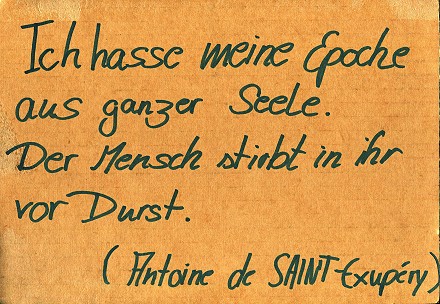 Ich hasse meine Epoche
aus ganzer Seele.
Der Mensch stirbt in ihr
vor Durst.
(Antoine de SAINT-Exupéry)